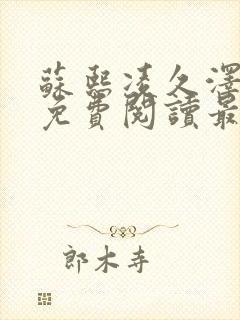 蘇熙凌久澤
免費閱讀最
郎木寺